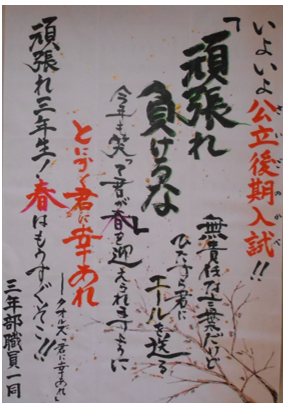 いよいよ公立後期入試!!
さいごのかべ
「頑張れ
負けるな」
無責任な言葉だけど
ひたすら君に
エールを送る
今年も笑って君が春を迎えられますように
とにかく君に幸あれ
——タオルズ「君に幸あれ」
頑張れ三年生!春はもうすぐそこ!!
三年部職員一同